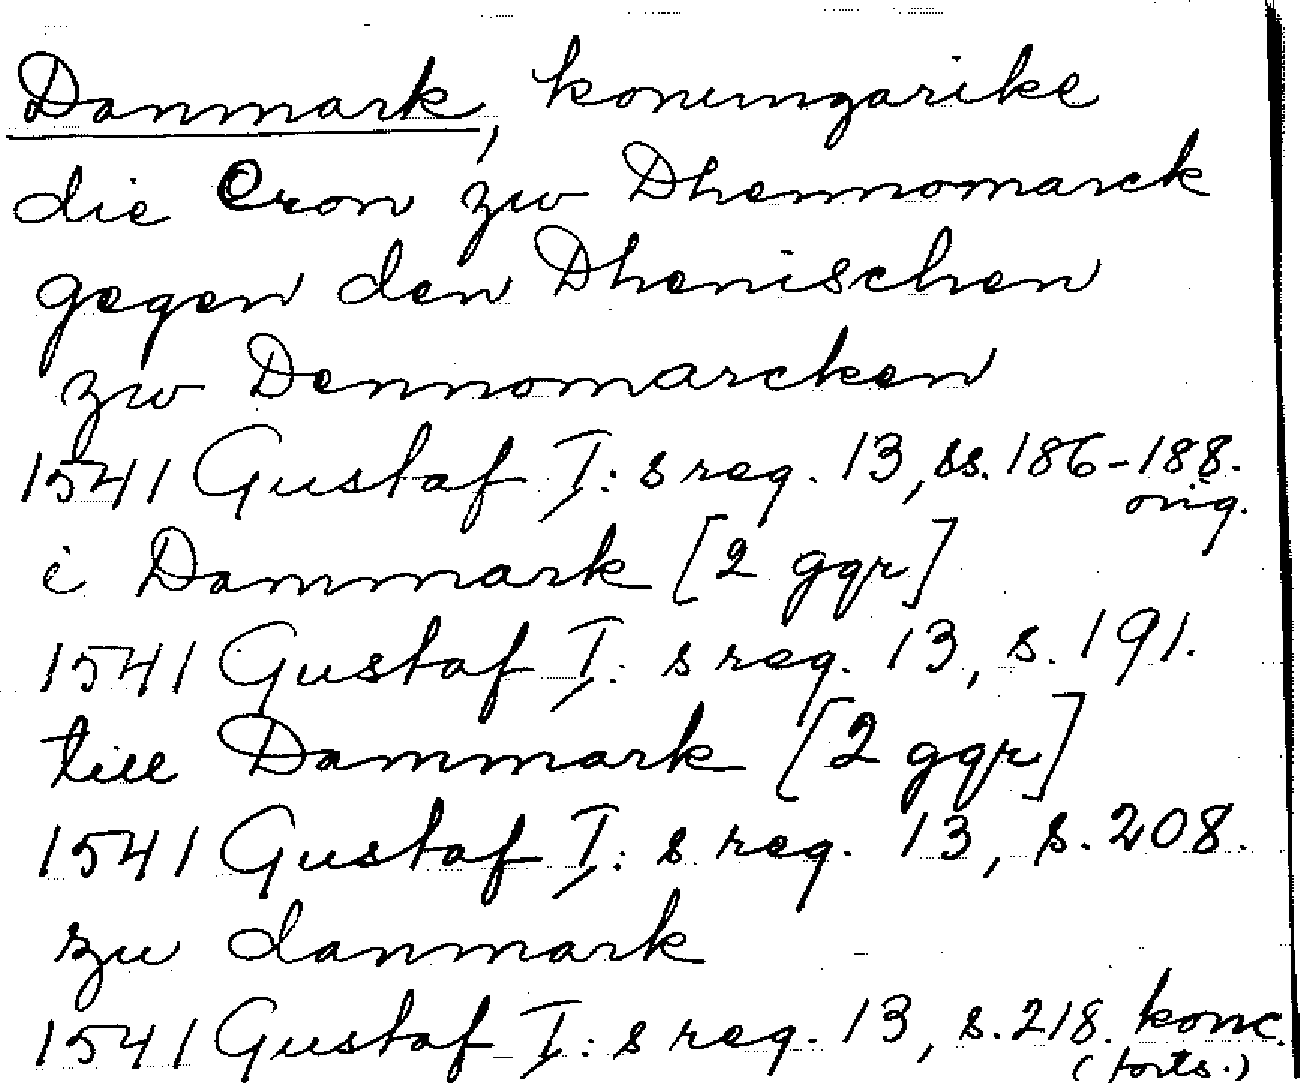 Danmark, konungarike
die Cron zw Dhennomarck
gegen den Dhenischen
zw Dennomarcken
1541 Gustaf I:s reg. 13, ss. 186-188.
orig.
i Danmark [2 ggr]
1541 Gustaf I:s reg. 13, s. 191.
till Danmark [2 ggr]
1541 Gustaf I:s reg. 13, s. 208.
zu danmark
1541 Gustaf I:s reg. 13, s. 218. konc.
(forts.)